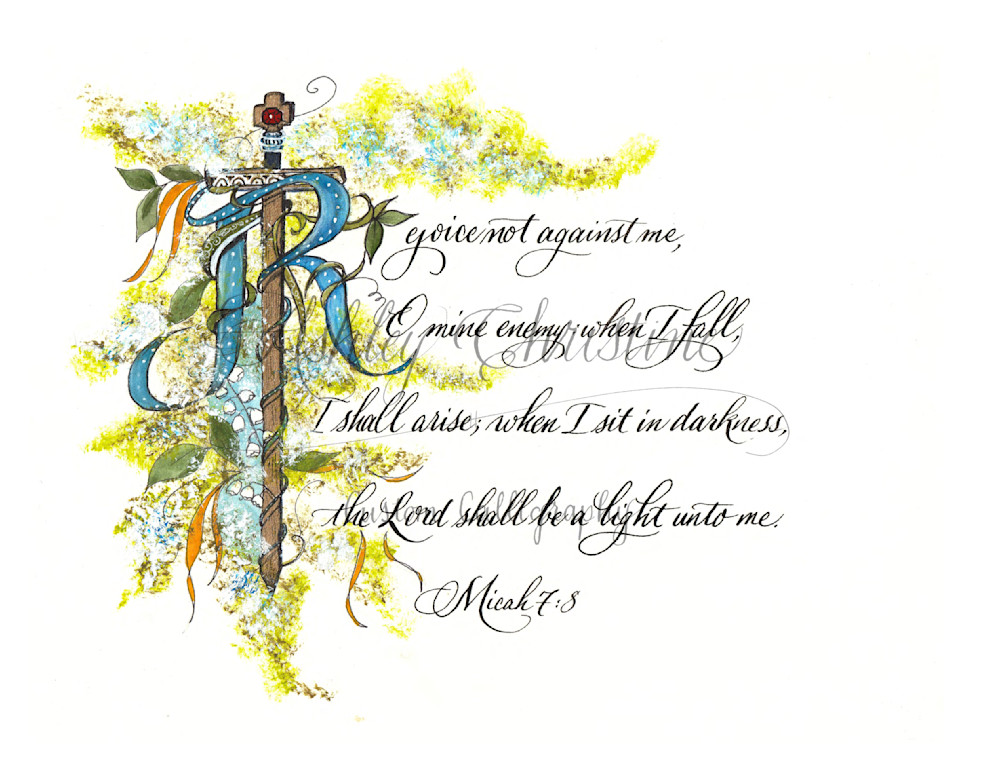 Rejoice not against me,
O mine enemy; when I fall,
Ashley Christine
I shall arise; when I sit in darkness,
the Lord shall be a light unto me.
Custom Calligraphy
Micah 7:8